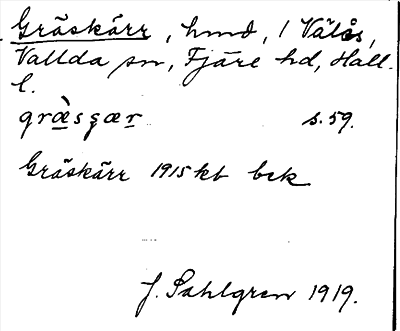 Gräskärr, hmd, 1 Välås,
Vallda sn, Fjäre hd, Hall.
l.
græ̀sʂær s. 59.
Gräskärr 1915 kb bek
J. Sahlgren 1919.